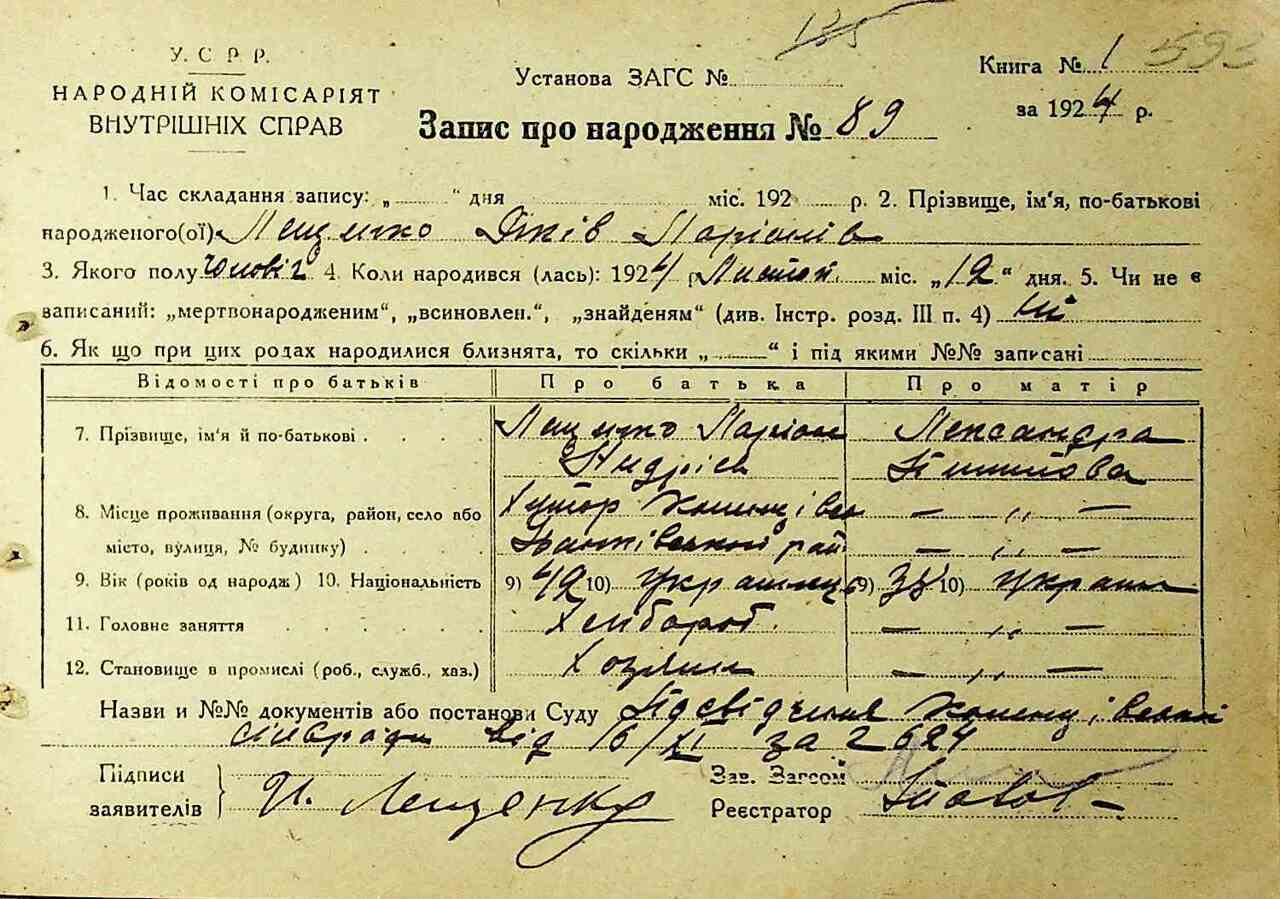 135
У. С Р Р.
НАРОДНІЙ КОМІСАРІЯТ
ВНУТРІШНІХ СПРАВ
Установа ЗАГС №
Книга № 1 593
за 1924 р.
Запис про народження № 89
1. Час складання запису: „ “ дня міс. 192 р. 2. Прізвище, ім'я, по-батькові
народженого(ої) Лещенко Яків Ларіонів
3. Якого полу Чоловіч 4. Коли народився (лась): 1924 р. Листоп. міс. „12“ дня. 5. Чи не є
записаний: „мертвонародженим“, „всиновлен.“, „знайденям“ (див. Інстр. розд. III п. 4) Ні
6. Як що при цих родах народилися близнята, то скільки „ “ і під якими №№ записані
Відомості про батьків Про батька Про матір
7. Прізвище, ім'я й по-батькові . . . . Лещенко Ларіон Лександра
Андріев
8. Місце проживання (округа, район, село або Хутор — „ —
місто, вулиця, № будинку) . . . . рай — „ —
9. Вік (років од народж) 10. Національність 9) 42 10) українец 9) 10) україн
11. Головне заняття . . . . . Хлібороб. — „ —
12. Становище в промислі (роб., служб., хаз.) Хозяин — „ —
Назви и №№ документів або постанови Суду Посвідчення
сільради від 16/XI за № 2624
Підписи
заявителів И. Лещенко
Зав. Загсом
Реєстратор